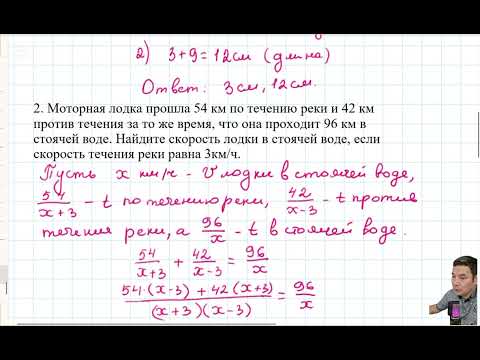 2) 3+9=12см (длина)
Ответ: 3см, 12см.
2. Моторная лодка прошла 54 км по течению реки и 42 км
против течения за то же время, что она проходит 96 км в
стоячей воде. Найдите скорость лодки в стоячей воде, если
скорость течения реки равна 3км/ч.
Пусть x км/ч - V лодки в стоячей воде,
54/(x+3) - t по течению реки, 42/(x-3) - t против
течения реки, а 96/x - t в стоячей воде.
54/(x+3) + 42/(x-3) = 96/x
(54·(x-3) + 42(x+3))/((x+3)(x-3)) = 96/x